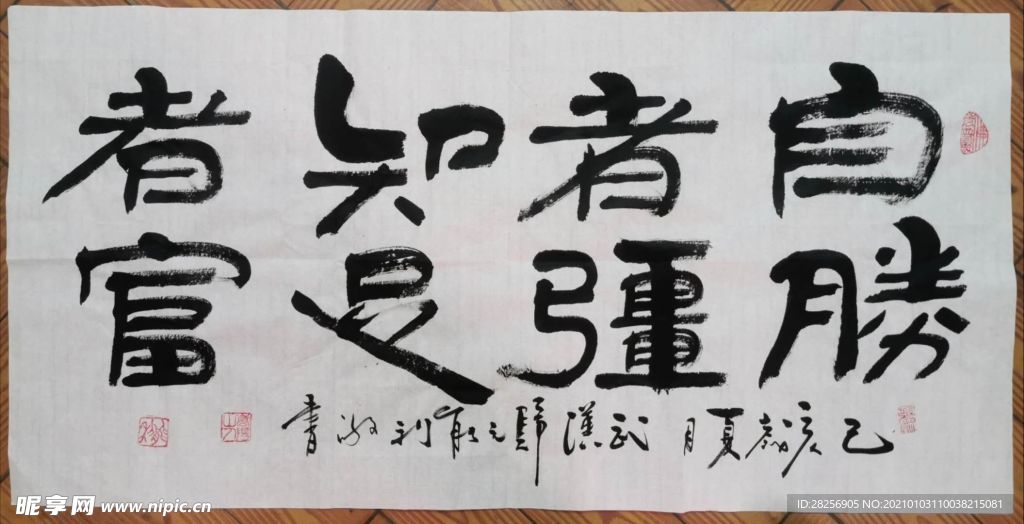 自勝
者彊
知足
者富
己亥初夏月武漢歸元敬利書
昵享网 www.nipic.cn
ID:28256905 NO:20210103110038215081